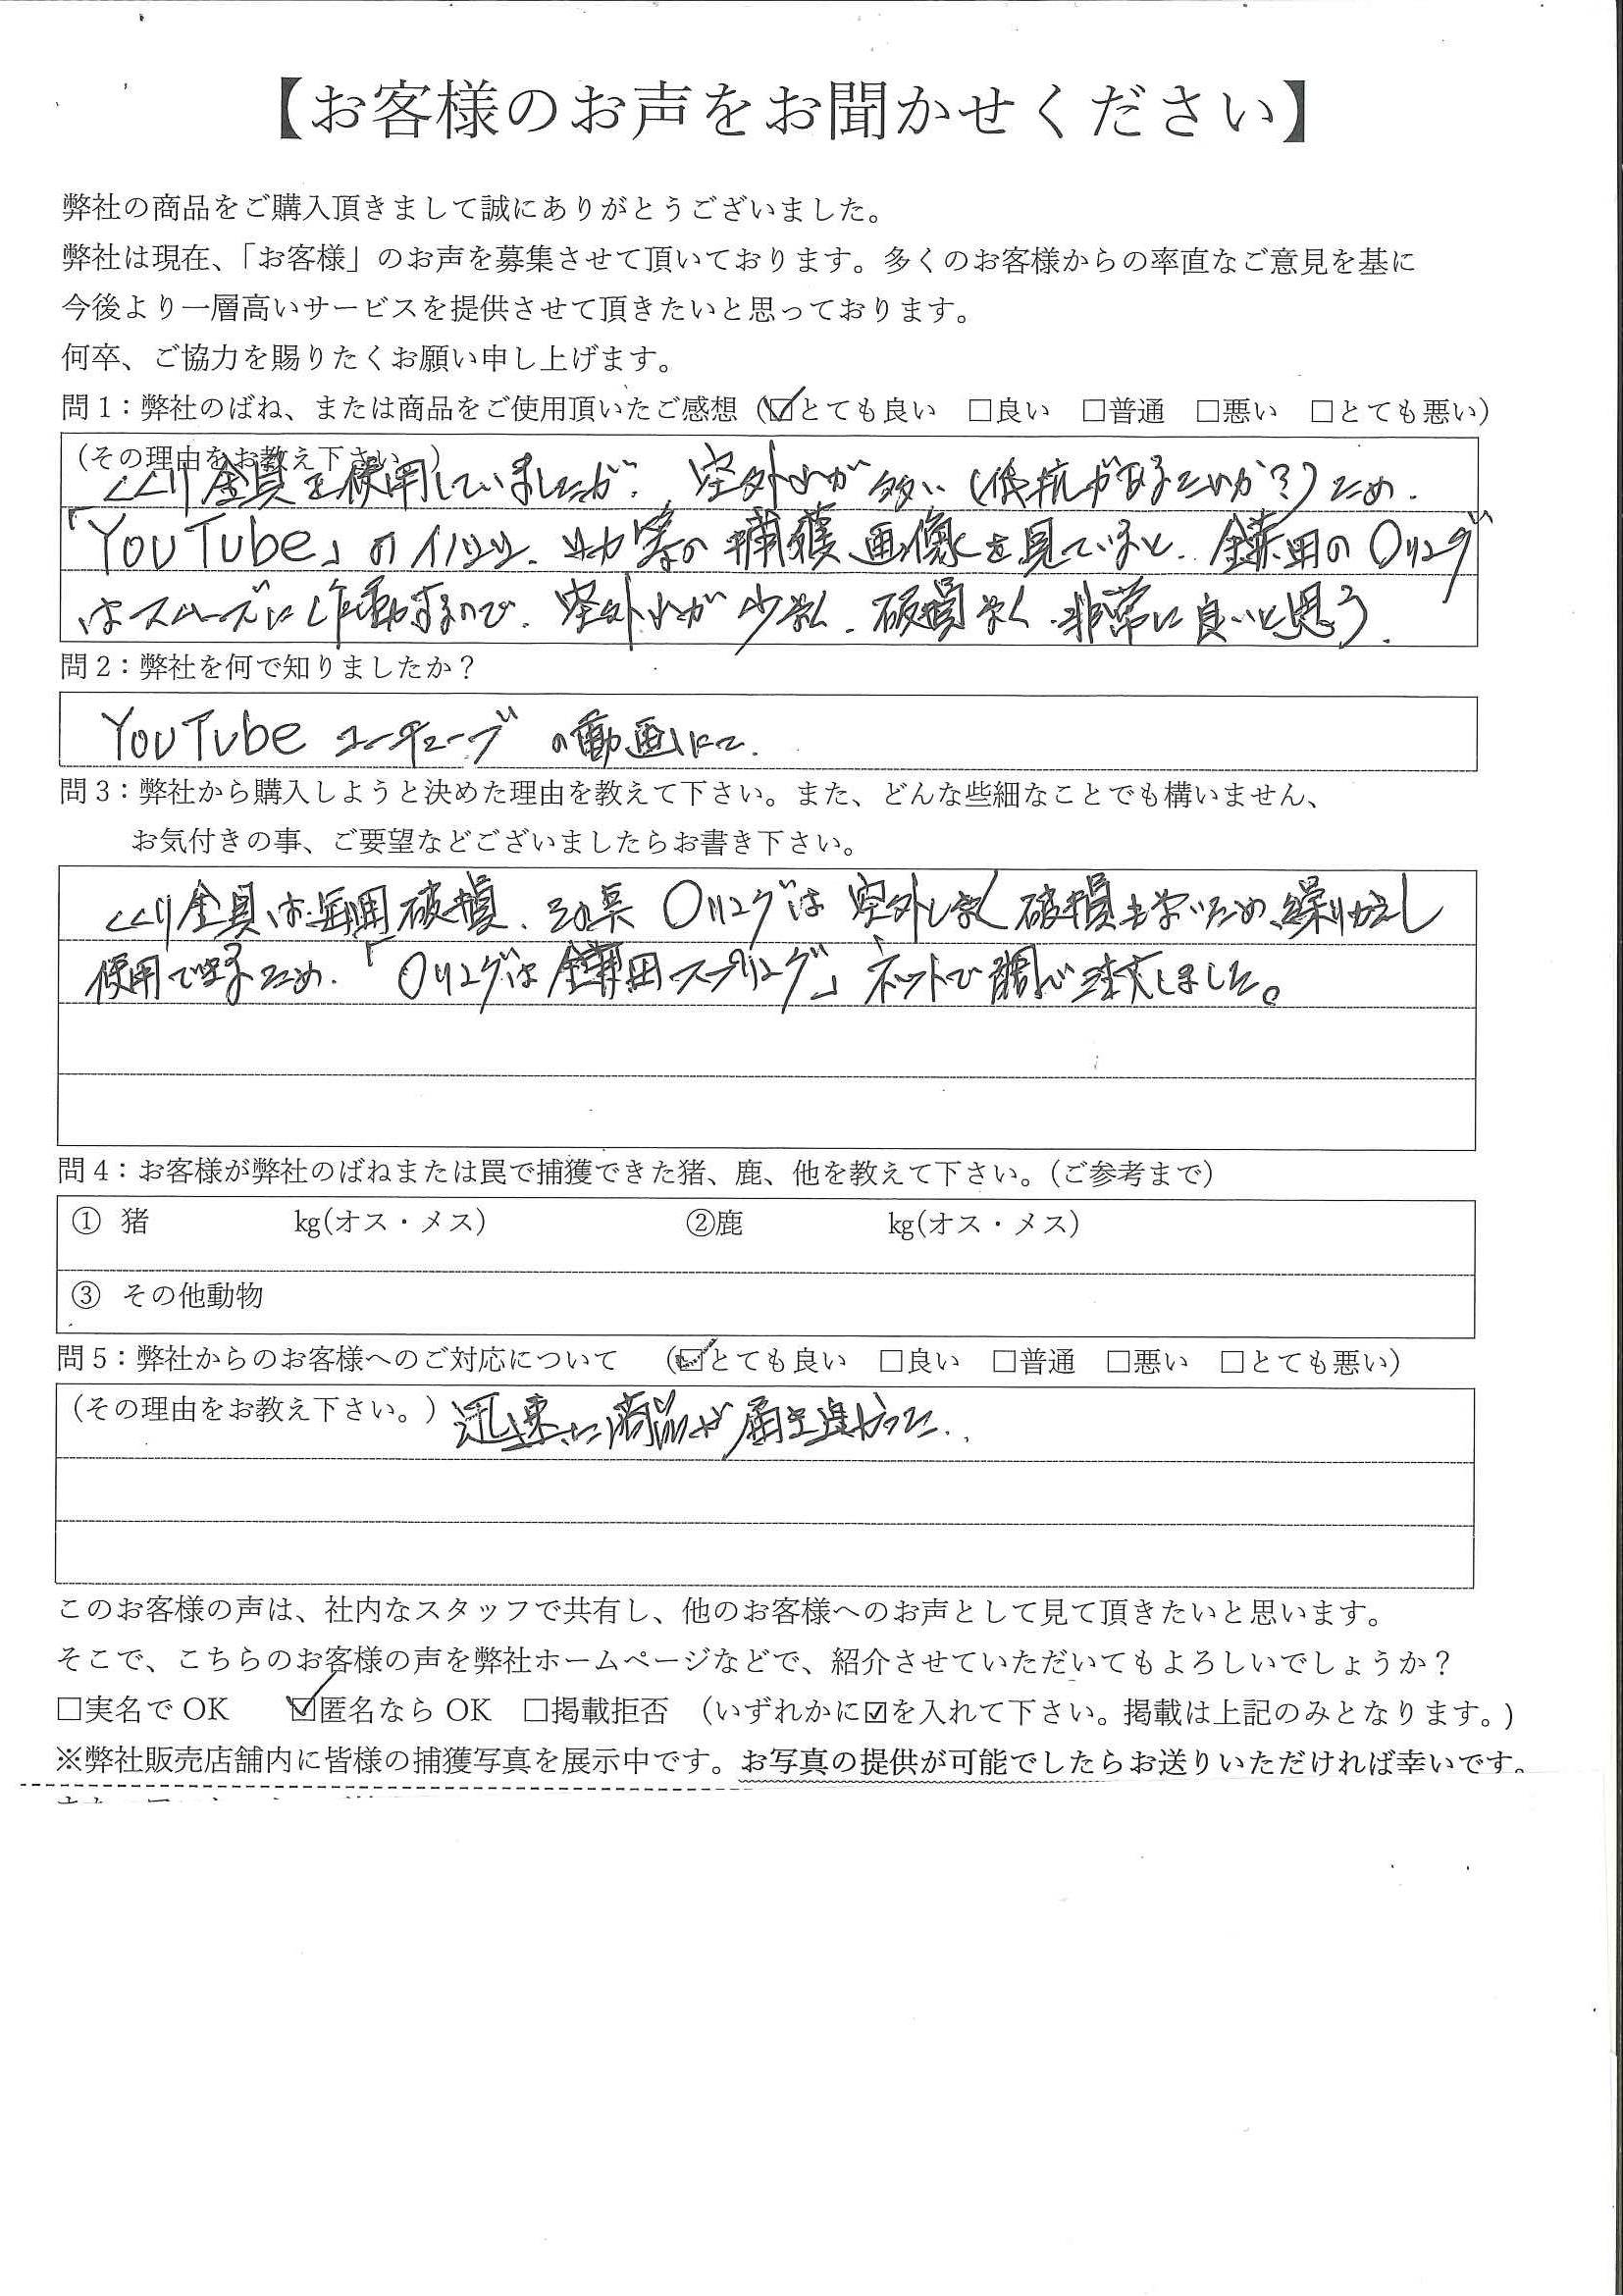 【お客様のお声をお聞かせください】
弊社の商品をご購入頂きまして誠にありがとうございました。
弊社は現在、「お客様」のお声を募集させて頂いております。多くのお客様からの率直なご意見を基に
今後より一層高いサービスを提供させて頂きたいと思っております。
何卒、ご協力を賜りたくお願い申し上げます。
問1：弊社のばね、または商品をご使用頂いたご感想（☑とても良い　□良い　□普通　□悪い　□とても悪い）
（その理由をお教え下さい。）
くくり金具を使用していましたが、空外れが多い（抵抗がためか?）ため、
「YouTube」のイノシシ、シカ等の捕獲画像を見ていると、鎌田のOリング
はスムーズに作動するので、空外れが少なく、破損なく、非常に良いと思う。
問2：弊社を何で知りましたか？
YouTube ユーチューブの動画にて。
問3：弊社から購入しようと決めた理由を教えて下さい。また、どんな些細なことでも構いません、
お気付きの事、ご要望などございましたらお書き下さい。
くくり金具は破損、その点Oリングは空外しなく破損も無いため、繰りかえし
使用できるため、「Oリングは鎌田スプリング」ネットで調べ注文しました。
問4：お客様が弊社のばねまたは罠で捕獲できた猪、鹿、他を教えて下さい。（ご参考まで）
① 猪　kg(オス・メス)　②鹿　kg(オス・メス)
③ その他動物
問5：弊社からのお客様へのご対応について　（☑とても良い　□良い　□普通　□悪い　□とても悪い）
（その理由をお教え下さい。）迅速に商品が届き良かった。
このお客様の声は、社内なスタッフで共有し、他のお客様へのお声として見て頂きたいと思います。
そこで、こちらのお客様の声を弊社ホームページなどで、紹介させていただいてもよろしいでしょうか？
□実名でOK　☑匿名ならOK　□掲載拒否　（いずれかに☑を入れて下さい。掲載は上記のみとなります。）
※弊社販売店舗内に皆様の捕獲写真を展示中です。お写真の提供が可能でしたらお送りいただければ幸いです。